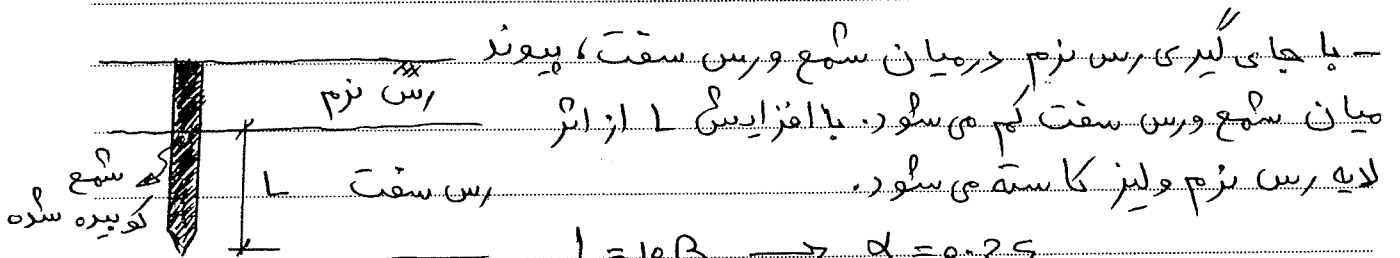 - با جای گیری رس نرم درمیان شمع و رس سفت، پیوند
میان شمع و رس سفت کم می شود. با افزایش L از اثر
لایه رس نرم ولیز کاسته می شود.
رس نرم
رس سفت
L
شمع
کوبیده شده
L = 10B → α = 0.25